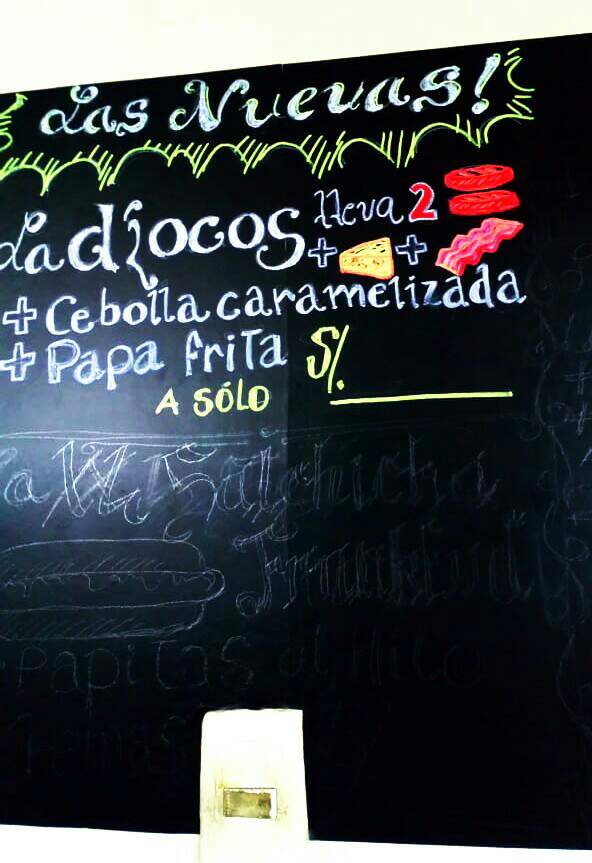 Las Nuevas!
Ladiocos lleva 2
+ +
+ Cebolla caramelizada
+ Papa frita S/.
A SÓLO
Salchicha
Papitas al Hilo